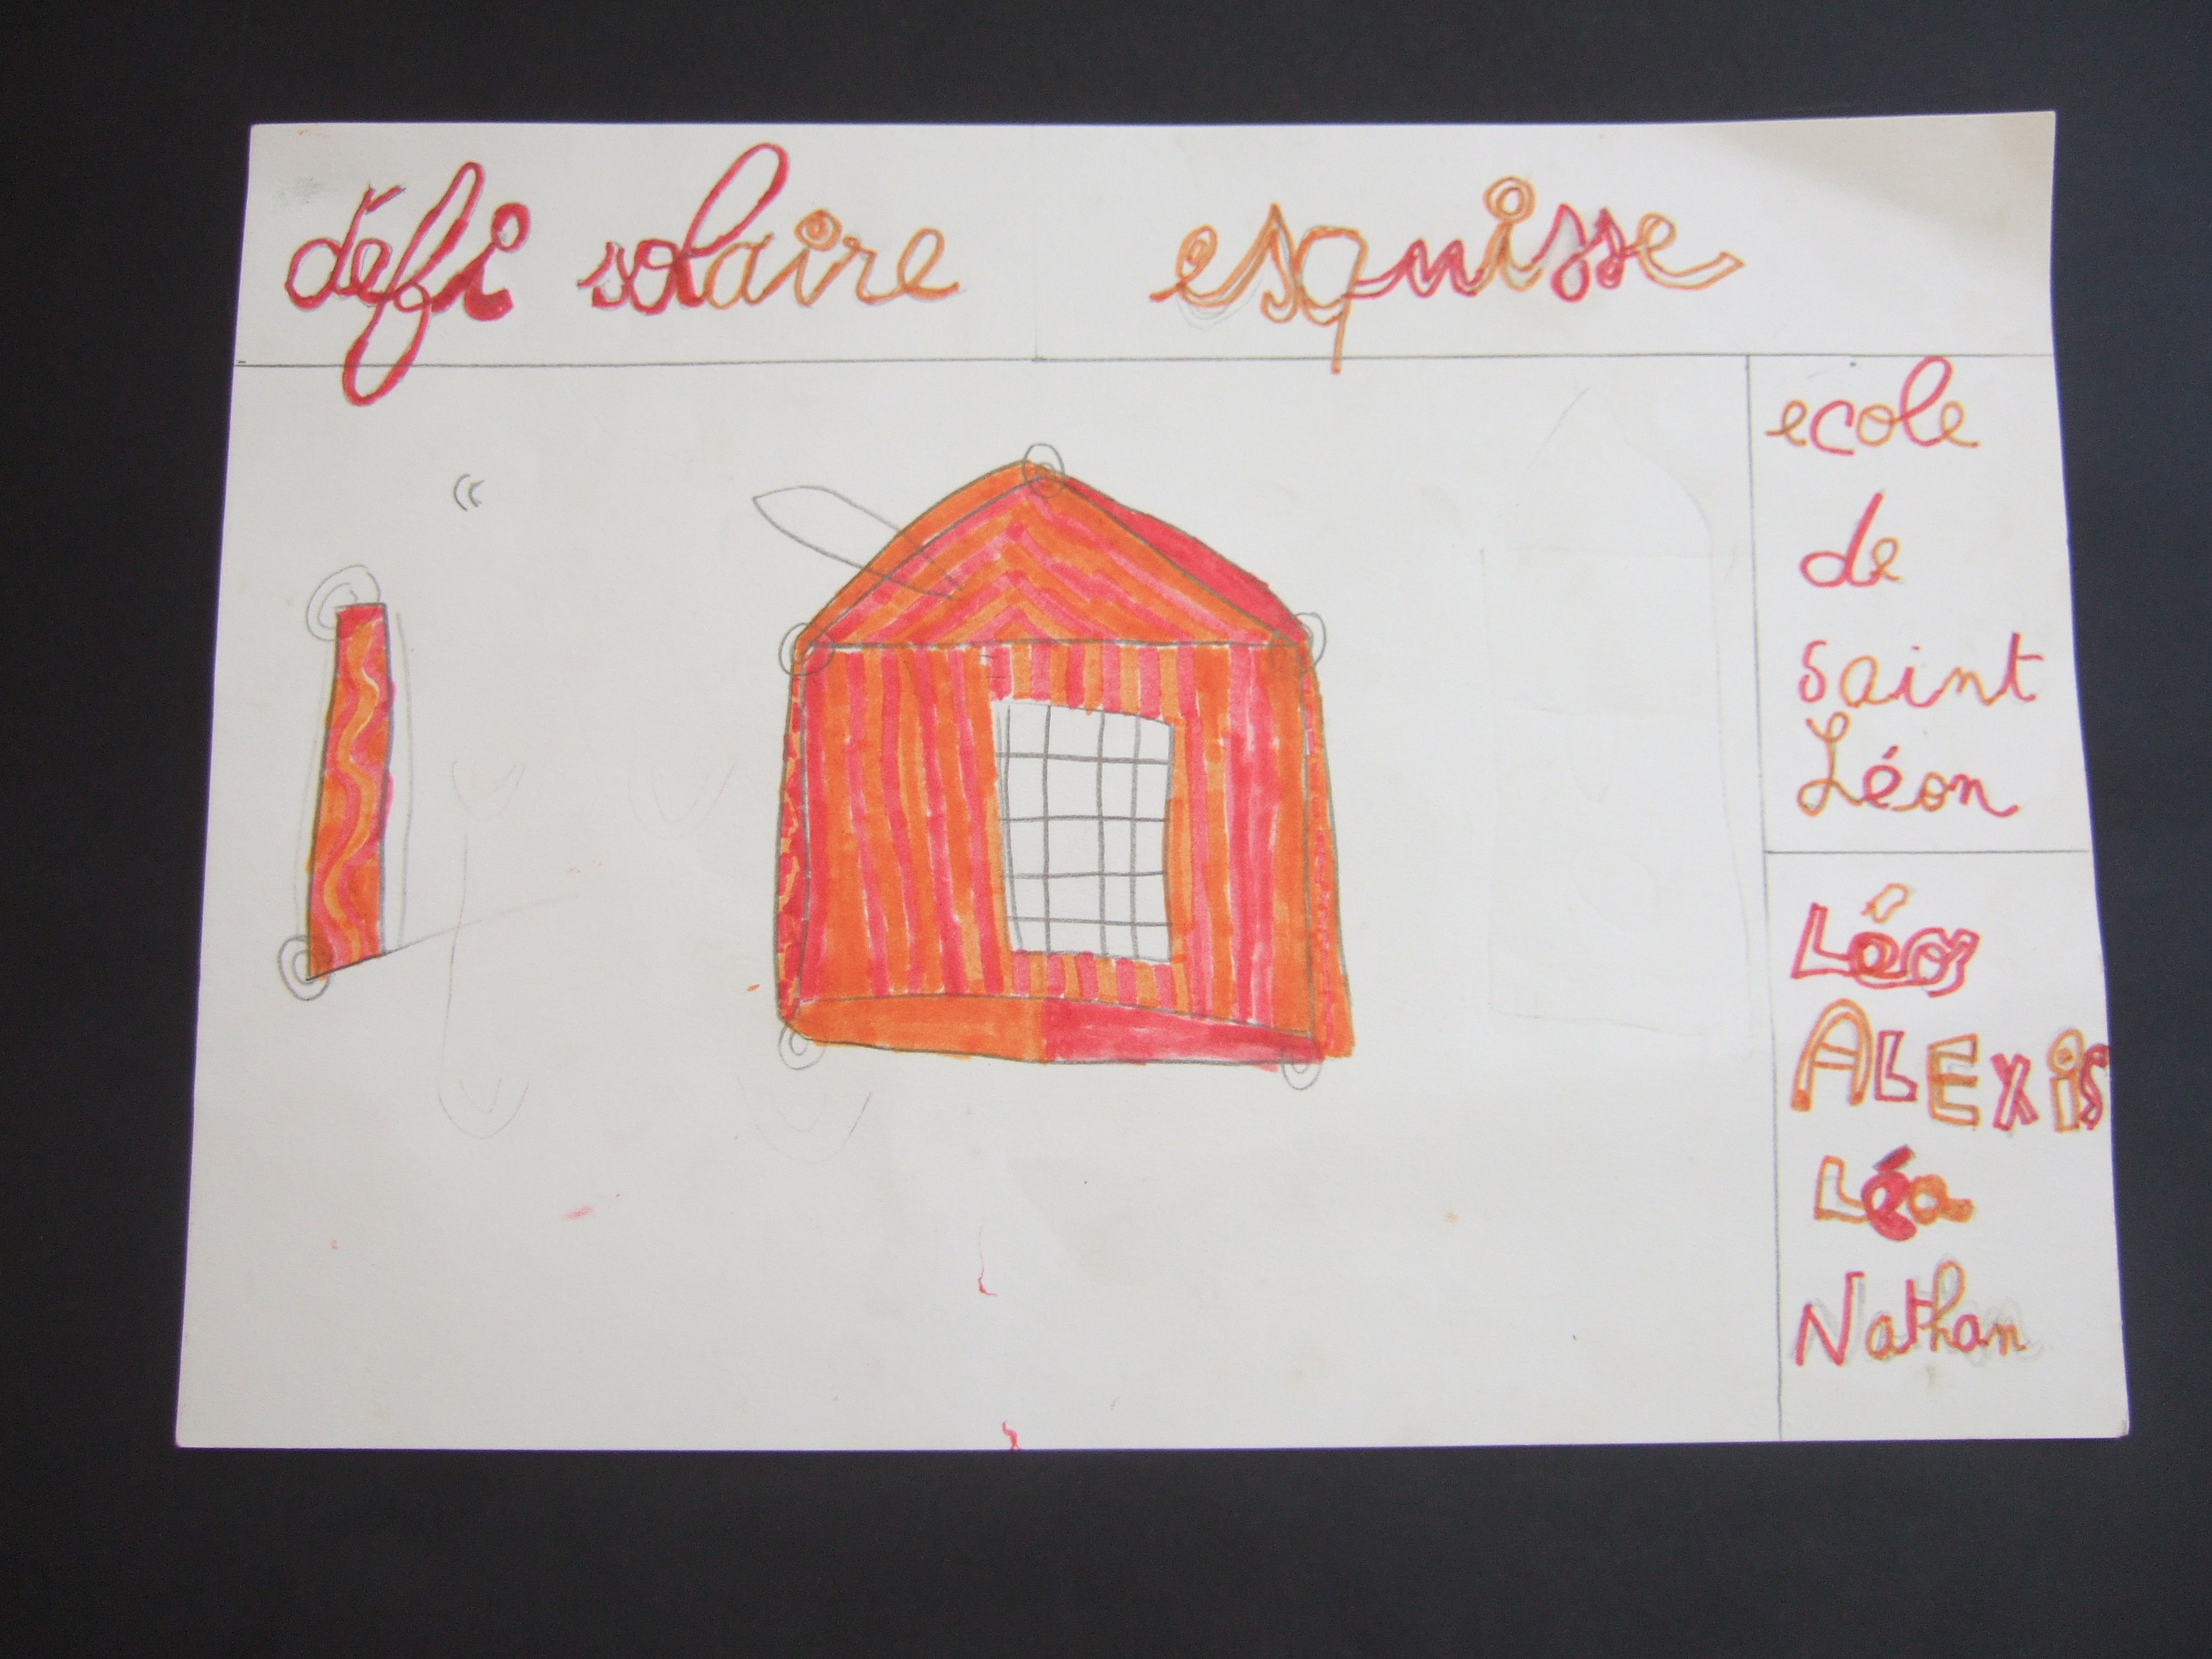 défi solaire esquisse
ecole
de
Saint
Léon
Léo
ALEXiS
Léa
Nathan